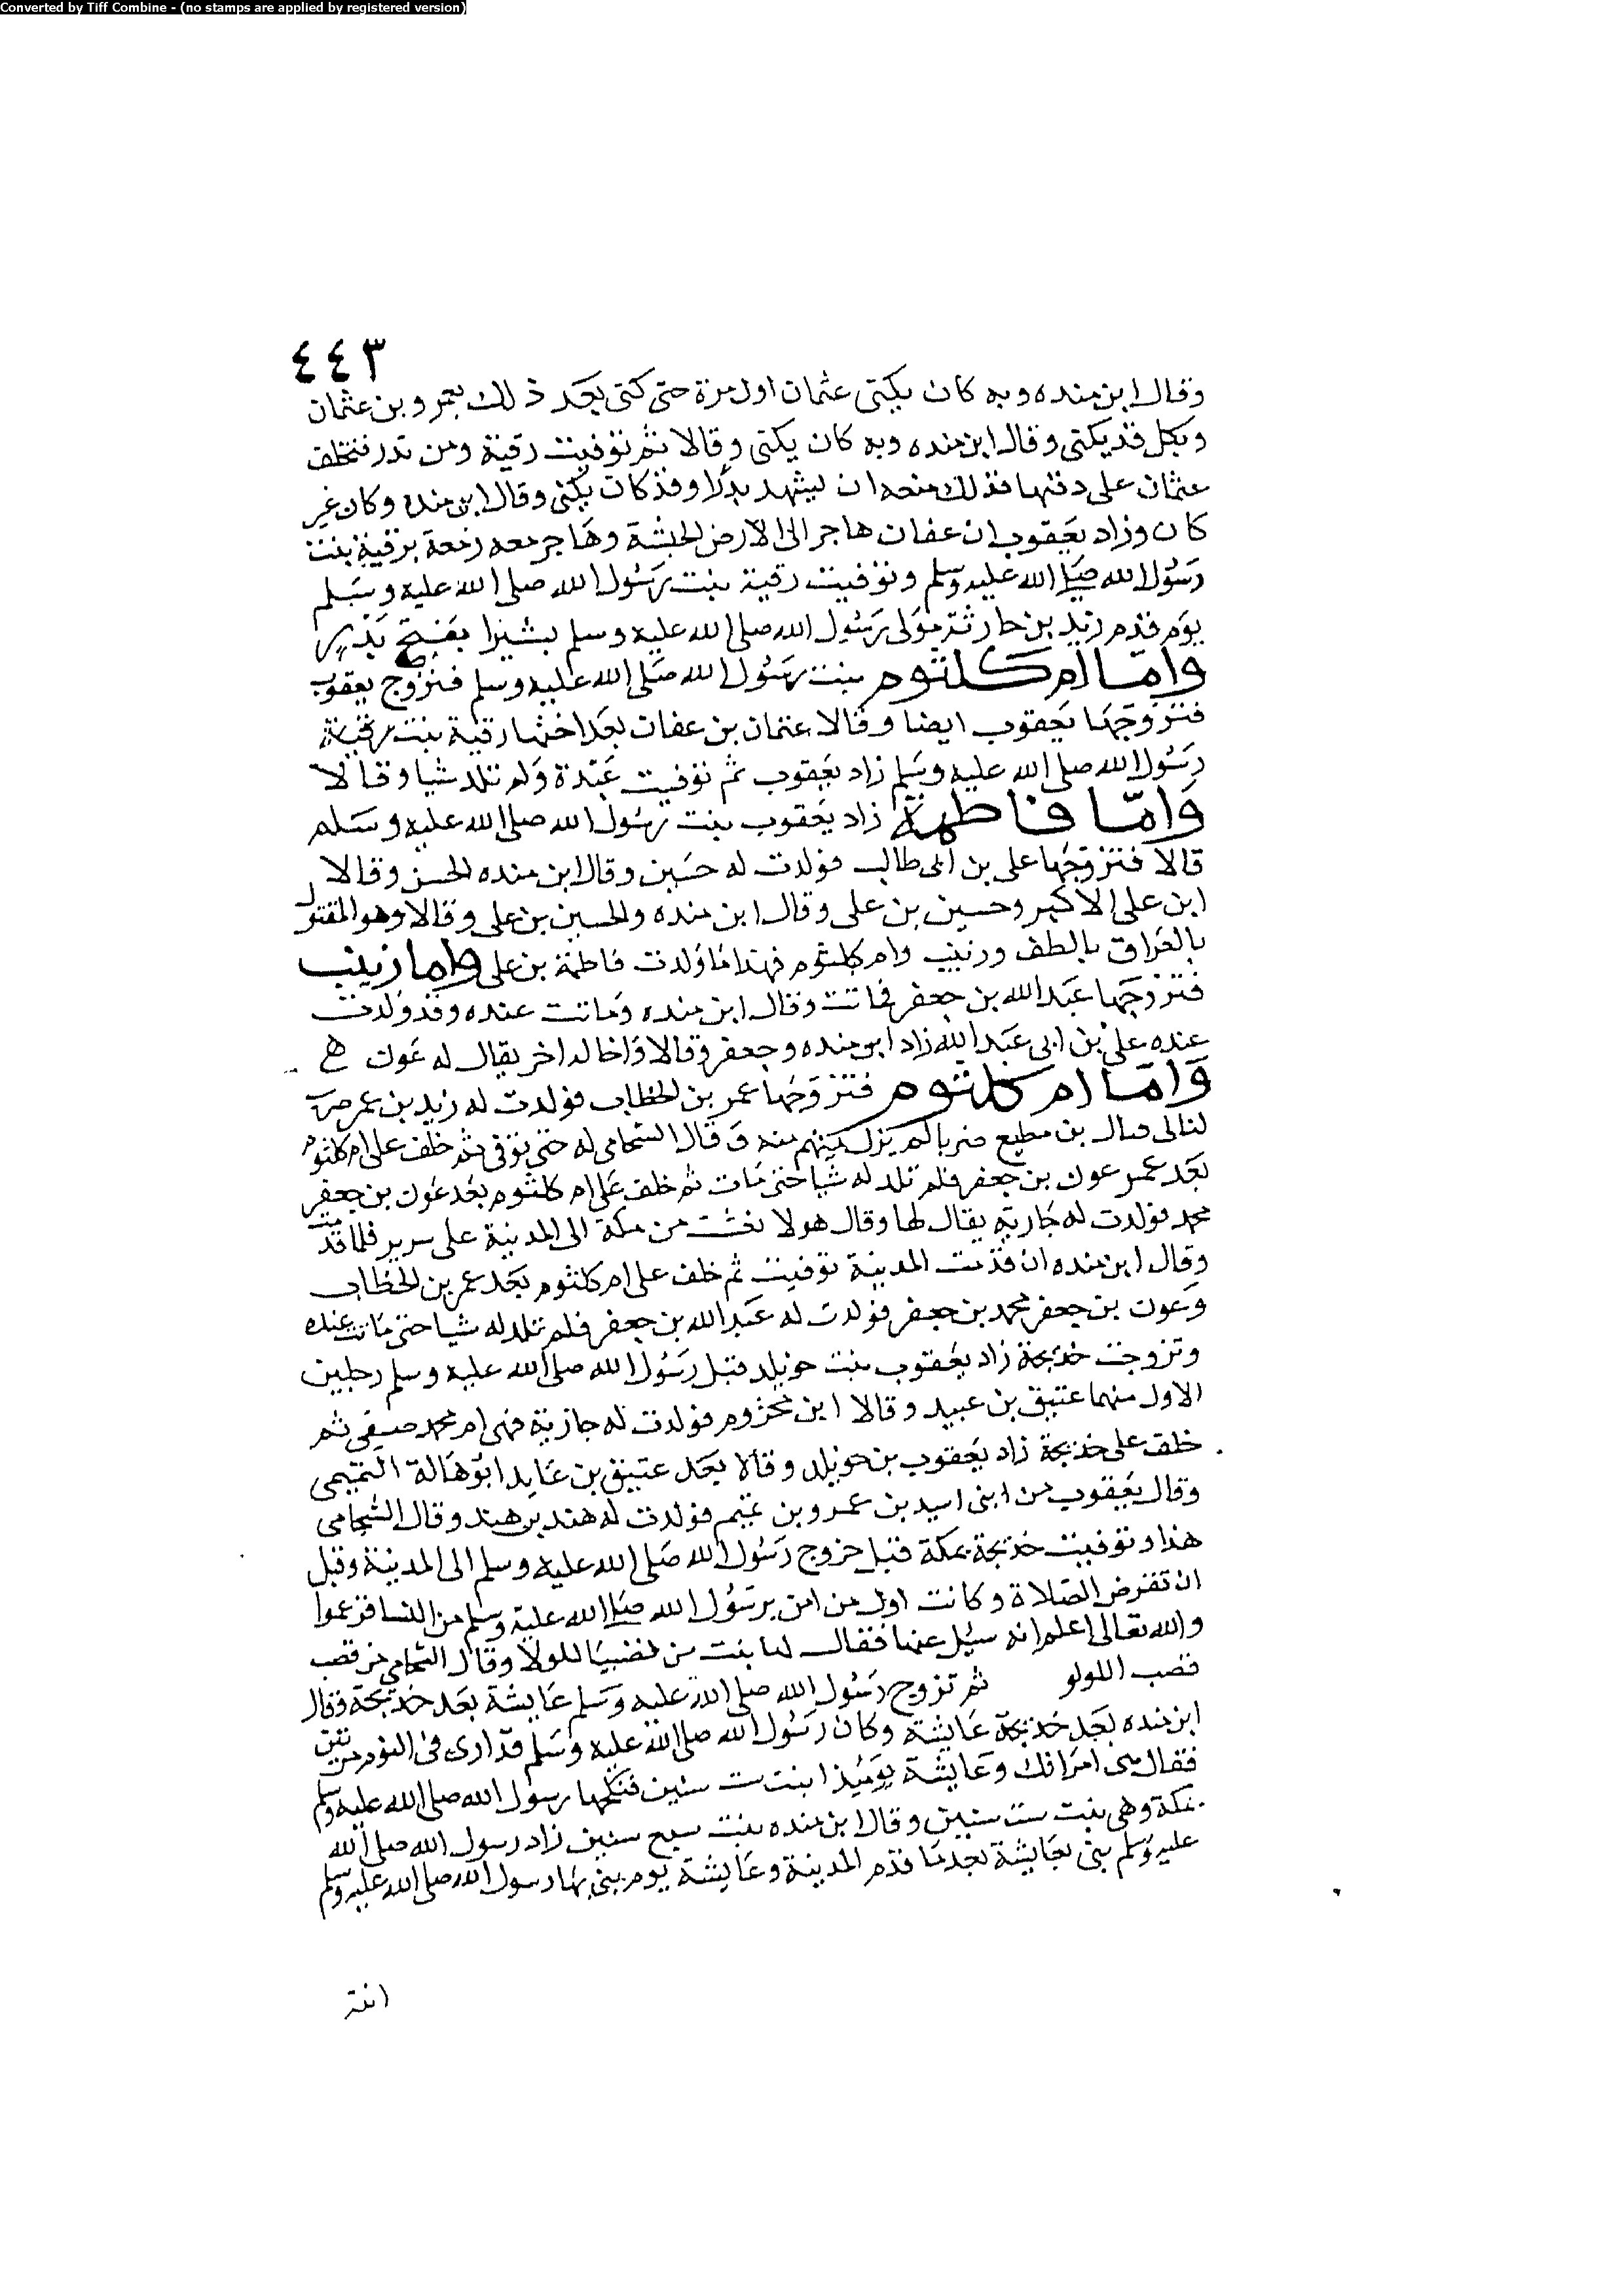 Converted by Tiff Combine - (no stamps are applied by registered version)
٤٤٣
وقال ابن منده وبه كان يكنى عثمان اول مرة حتى كنى بعد ذلك بعمرو بن عثمان
وبكل قد يكنى وقال ابن منده وبه كان يكنى وقالا ثم توفيت رقية ومن بدر فتخلف
عثمان على دفنها فذلك منعه ان ليشهد بدرا وقد كان يكنى وقال ابن منده وكان غير
كان وزاد يعقوب ان عفان هاجر الى الارض الحبشة وهاجر معه رفعة برقية بنت
رسول الله صلى الله عليه وسلم وتوفيت رقية بنت رسول الله صلى الله عليه وسلم
يوم قدم زيد بن حارثة مولى رسول الله صلى الله عليه وسلم بشيرا بفتح بدر
واما ام كلثوم بنت رسول الله صلى الله عليه وسلم فتزوج يعقوب
فتزوجها يعقوب ايضا وقالا عثمان بن عفان بعد اختها رقية بنت
رسول الله صلى الله عليه وسلم زاد يعقوب ثم توفيت عنده ولم تلد شيا وقالا
واما فاطمة زاد يعقوب بنت رسول الله صلى الله عليه وسلم
قالا فتزوجها على بن ابى طالب فولدت له حسين وقال ابن منده الحسن وقالا
ابن على الاكبر وحسين بن على وقال ابن منده والحسين بن على وقالا وهو المقتول
بالعراق بالطف وزينب وام كلثوم فهذا ما ولدت فاطمة بن على واما زينب
فتزوجها عبد الله بن جعفر فماتت وقال ابن منده وماتت عنده وقد ولدت
عنده على بن ابى عبد الله زاد ابن منده وجعفر وقالا واخا له اخر يقال له عون
واما ام كلثوم فتزوجها عمر بن الخطاب فولدت له زيد بن عمر ضرب
ليالى قتال بن مطيع ضربا لم يزل ينهم منه وقال الشحامى له حتى توفى ثم خلف على ام كلثوم
بعد عمر عون بن جعفر فلم تلد له شيا حتى مات ثم خلف على ام كلثوم بعد عون بن جعفر
محمد فولدت له جارية يقال لها وقال هولا نعشت من مكة الى المدينة على سرير فلما قدمت
وقال ابن منده ان قدمت المدينة توفيت ثم خلف على ام كلثوم بعد عمر بن الخطاب
وعون بن جعفر محمد بن جعفر فولدت له عبد الله بن جعفر فلم تلد له شيا حتى ماتت عنده
وتزوجت خديجة زاد يعقوب بنت خويلد قبل رسول الله صلى الله عليه وسلم رجلين
الاول منهما عتيق بن عبيد وقالا ابن مخزوم فولدت له جارية فهى ام محمد صيفى ثم
خلف على خديجة زاد يعقوب بن خويلد وقالا بعد عتيق بن عايد ابو هالة التميمى
وقال يعقوب من ابنى اسيد بن عمرو بن تميم فولدت له هند بن هند وقال الشحامى
هذا وتوفيت خديجة بمكة قبل خروج رسول الله صلى الله عليه وسلم الى المدينة وقبل
ان تفرض الصلاة وكانت اول من امن برسول الله صلى الله عليه وسلم من النسا فزعموا
والله تعالى اعلم انه سيل عنها فقال لها بنت من قضب اللولا وقال الشحامى من قصب
قضب اللولو ثم تزوج رسول الله صلى الله عليه وسلم عايشة بعد خديجة وقال
ابن منده بعد خديجة عايشة وكان رسول الله صلى الله عليه وسلم قد ارى فى النوم مرتين
فقال هى امراتك وعايشة يوميذ ابنت ست سنين فنكحها رسول الله صلى الله عليه وسلم
بمكة وهى بنت ست سنين وقال ابن منده بنت سبع سنين زاد رسول الله صلى الله
عليه وسلم بنى بعايشة بعد ما قدم المدينة وعايشة يوم بنى بها رسول الله صلى الله عليه وسلم
ابنة